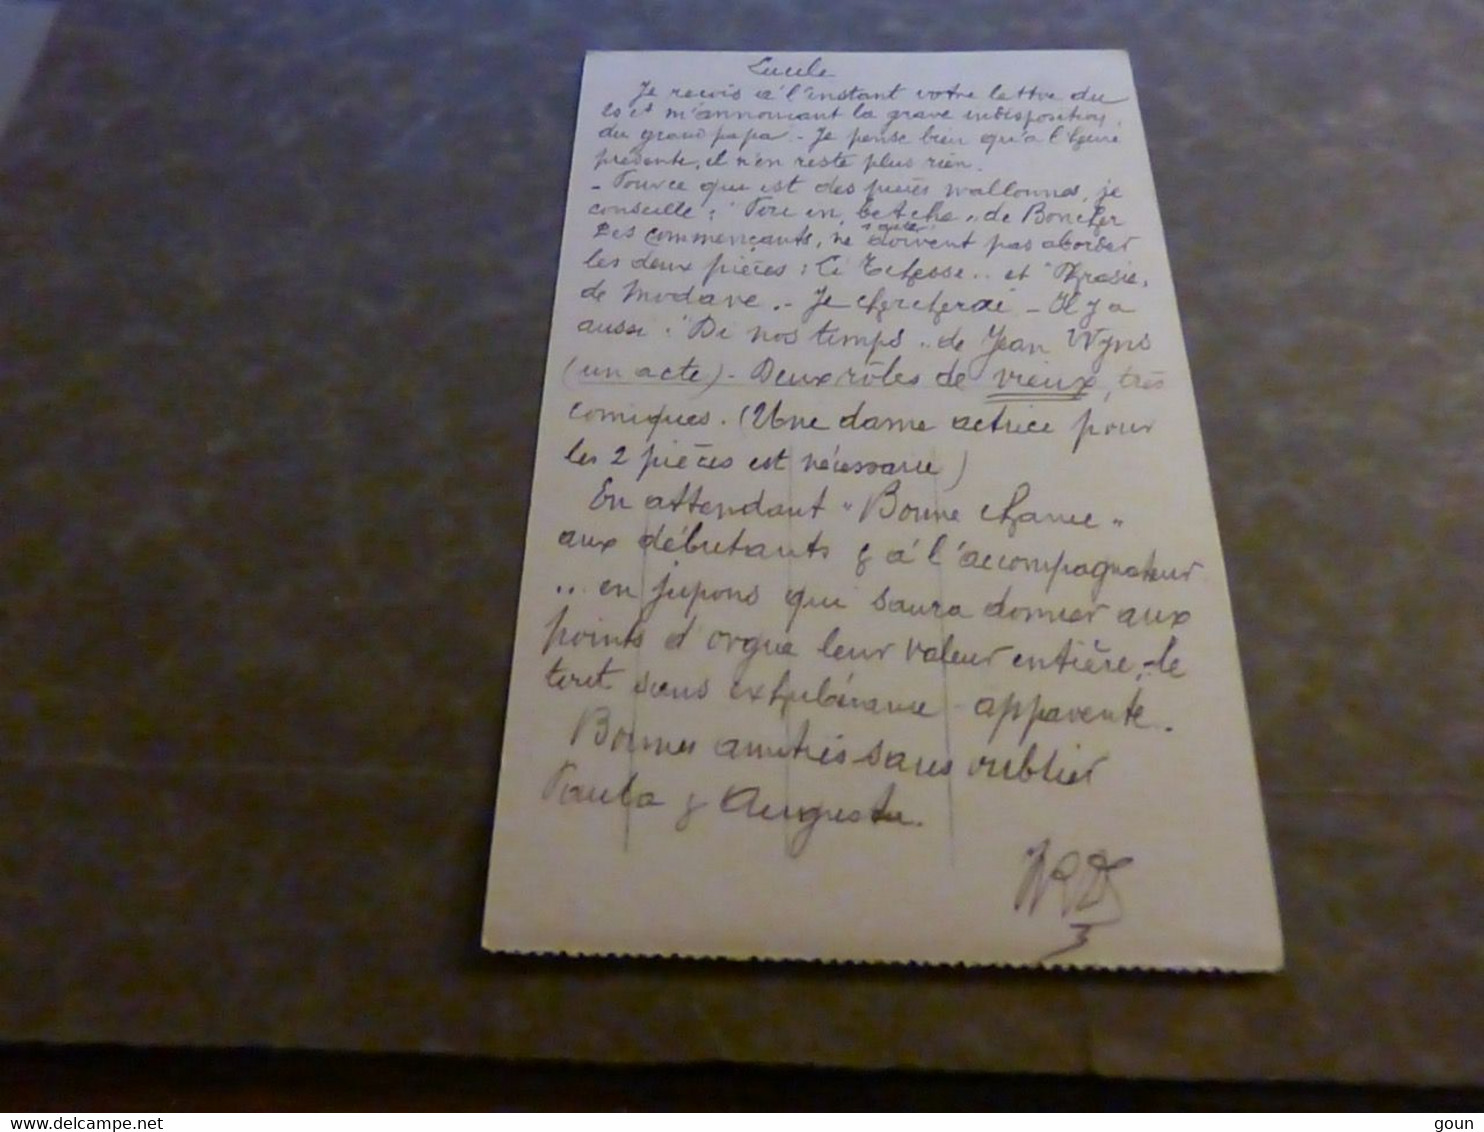 Lucile
Je reçois à l'instant votre lettre du
et m'annonçant la grave indisposition
du grand papa - Je pense bien qu'à l'heure
présente, il n'en reste plus rien.
- Pour ce qui est des pièces wallonnes, je
conseille : " in betche „ de Boncher
Les commençants, ne doivent pas aborder
les deux pièces : Li „ et "
de Modave. - Je chercherai - Il y a
aussi : "Di nos temps „ de Jean Wyns
(un acte) - Deux rôles de vieux, très
comiques. (Une dame actrice pour
les 2 pièces est nécessaire)
En attendant "Bonne chance „
aux débutants & à l'accompagnateur
.. en jupons qui saura donner aux
points d'orgue leur valeur entière, - le
tout sans exhubérance - apparente.
Bonnes amitiés sans oublier
Paula & Auguste.
delcampe.net
goun